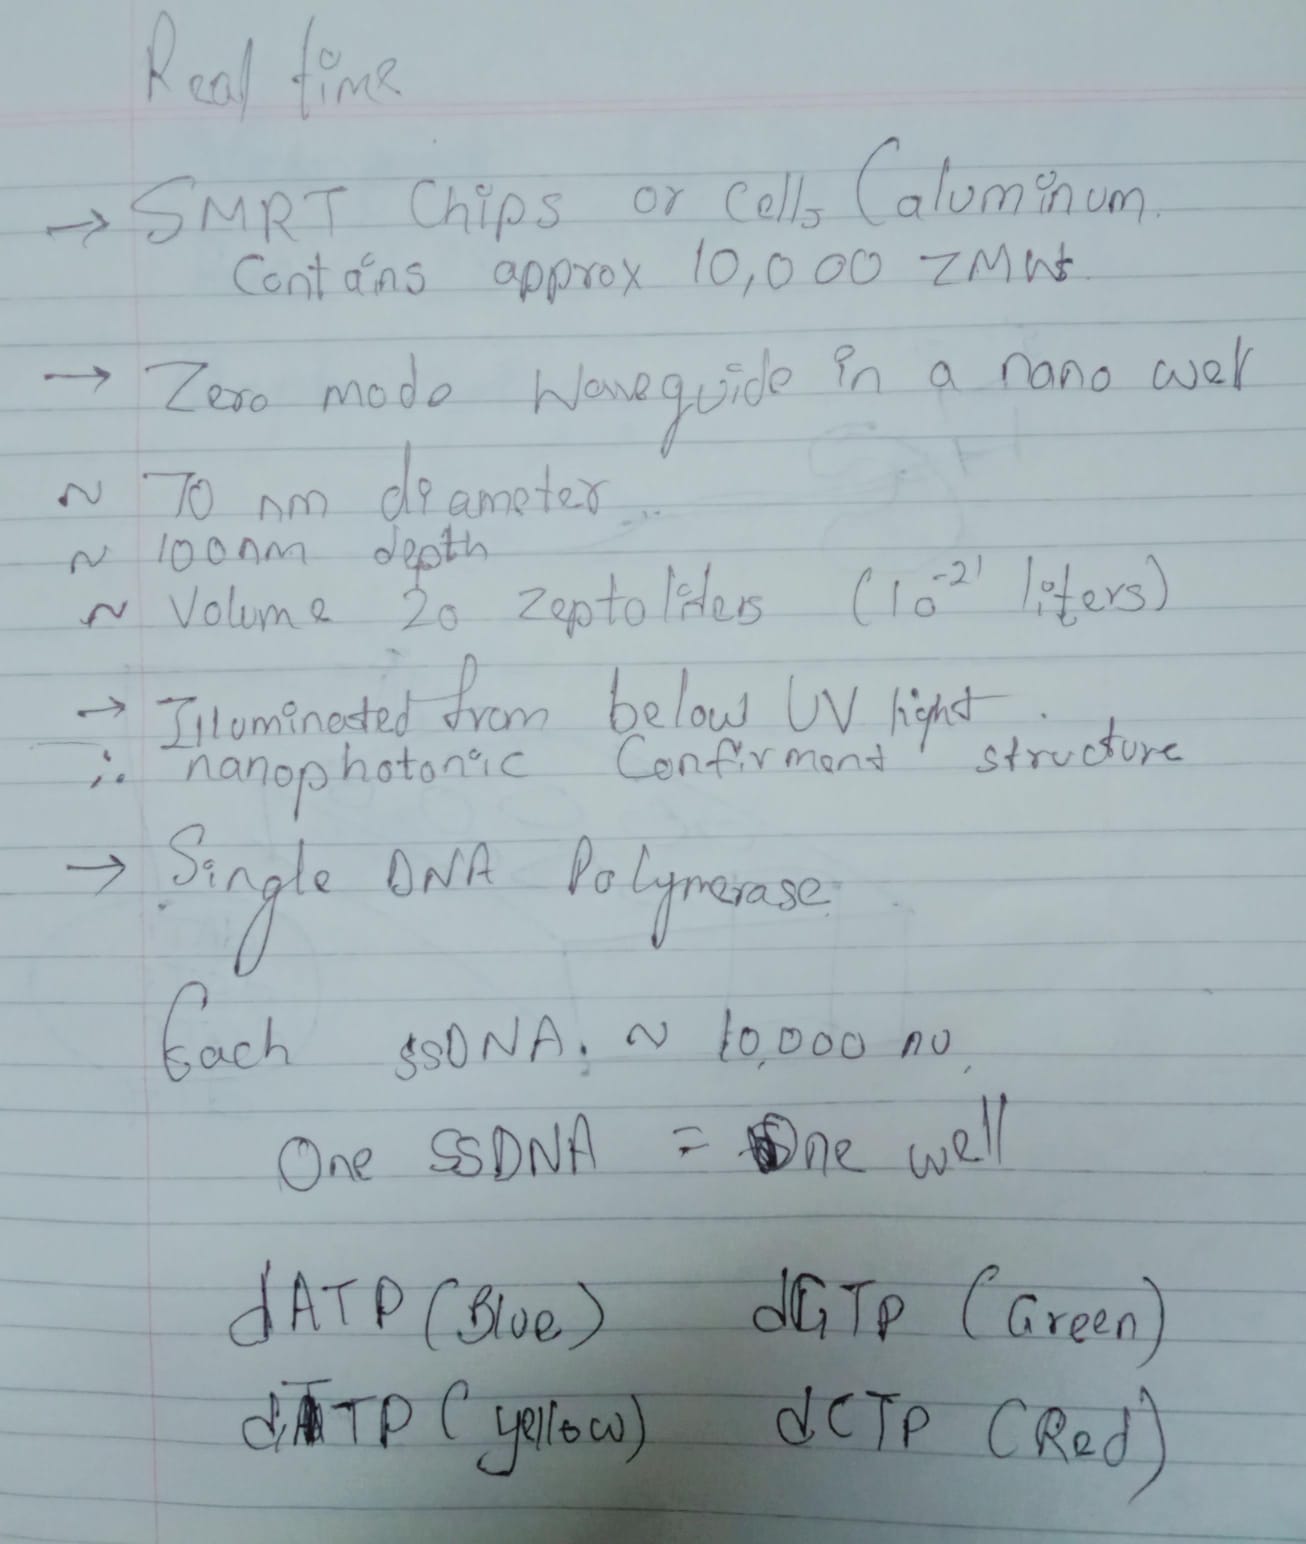 Real time
→ SMRT Chips or Cells (aluminum.
Contains approx 10,000 ZMWs.
→ Zero mode Waveguide in a nano well
~ 70 nm diameter
~ 100nm depth
~ Volume 20 Zeptoliters (10⁻²¹ liters)
→ Illuminated from below UV light.
∴ nanophotonic Confirment structure
→ Single DNA Polymerase
Each ssDNA. ~ 10,000 nu,
One SSDNA = One well
dATP (Blue) dGTP (Green)
dTTP (yellow) dCTP (Red)